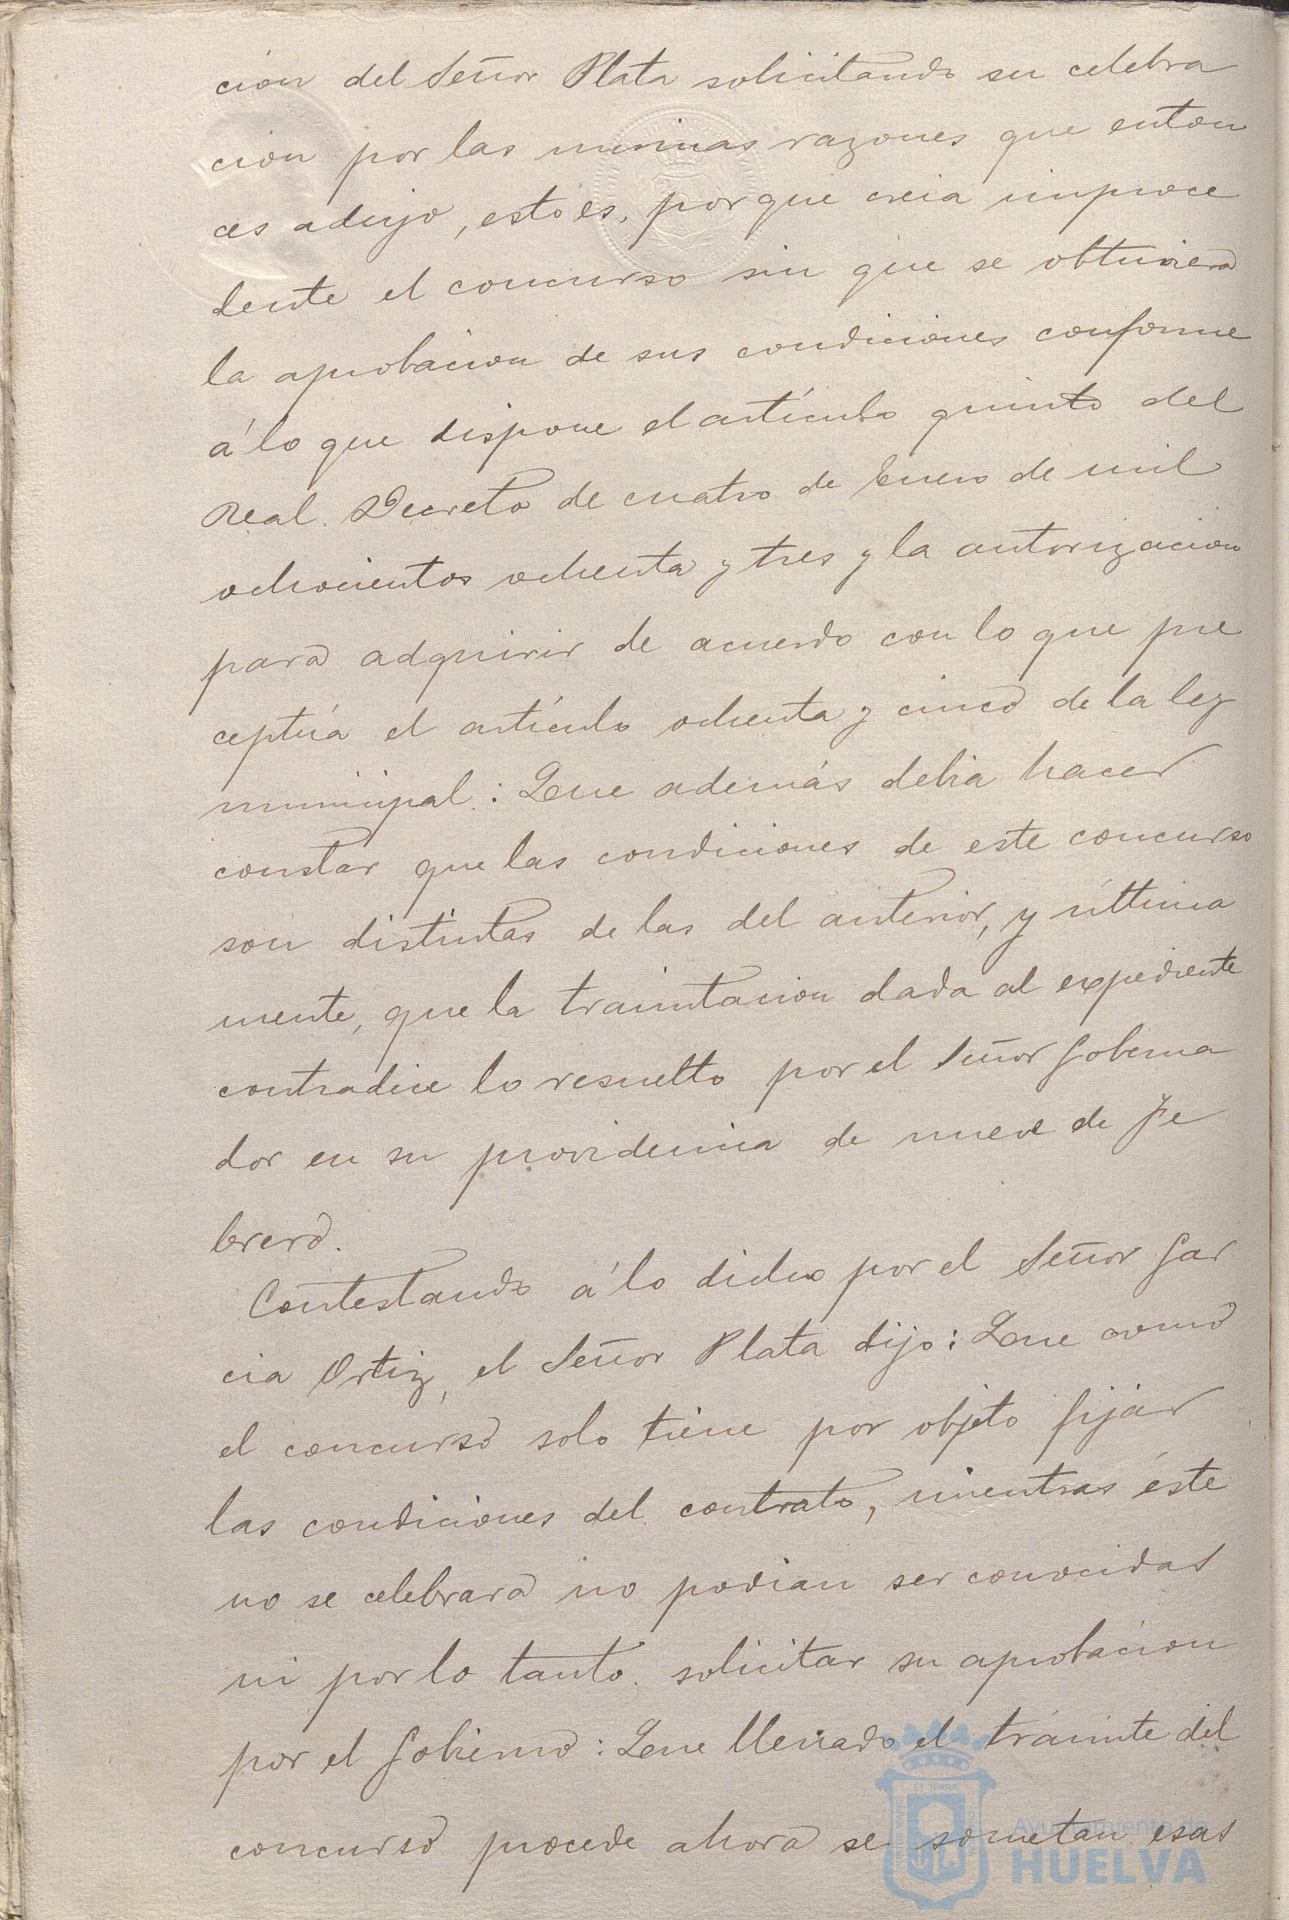 cion del Señor Plata solicitando su celebra
cion por las mismas razones que enton
ces adujo, esto es, porque creia improce
dente el concurso sin que se obtuviera
la aprobacion de sus condiciones conforme
á lo que dispone el artículo quinto del
Real Decreto de cuatro de Enero de mil
ochocientos ochenta y tres y la autorizacion
para adquirir de acuerdo con lo que pre
ceptúa el artículo ochenta y cinco de la ley
municipal: Que además debia hacer
constar que las condiciones de este concurso
son distintas de las del anterior, y última
mente, que la tramitacion dada al expediente
contradice lo resuelto por el Señor Goberna
dor en su providencia de nueve de Fe
brero.
Contestando á lo dicho por el Señor Gar
cia Ortiz, el Señor Plata dijo: Que como
el concurso solo tiene por objeto fijar
las condiciones del contrato, mientras éste
no se celebrara no podian ser conocidas
ni por lo tanto solicitar su aprobacion
por el Gobierno: Que llenado el trámite del
concurso procede ahora se sometan esas
Ayuntamiento
HUELVA